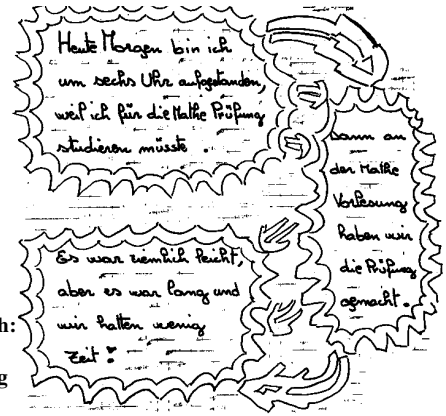 Heute Morgen bin ich
um sechs Uhr aufgestanden,
weil ich für die Mathe Prüfung
studieren müsste.
Dann an
der Mathe
Vorlesung
haben wir
die Prüfung
gemacht.
Es war ziemlich leicht,
aber es war lang und
wir hatten wenig
Zeit!
h:
g